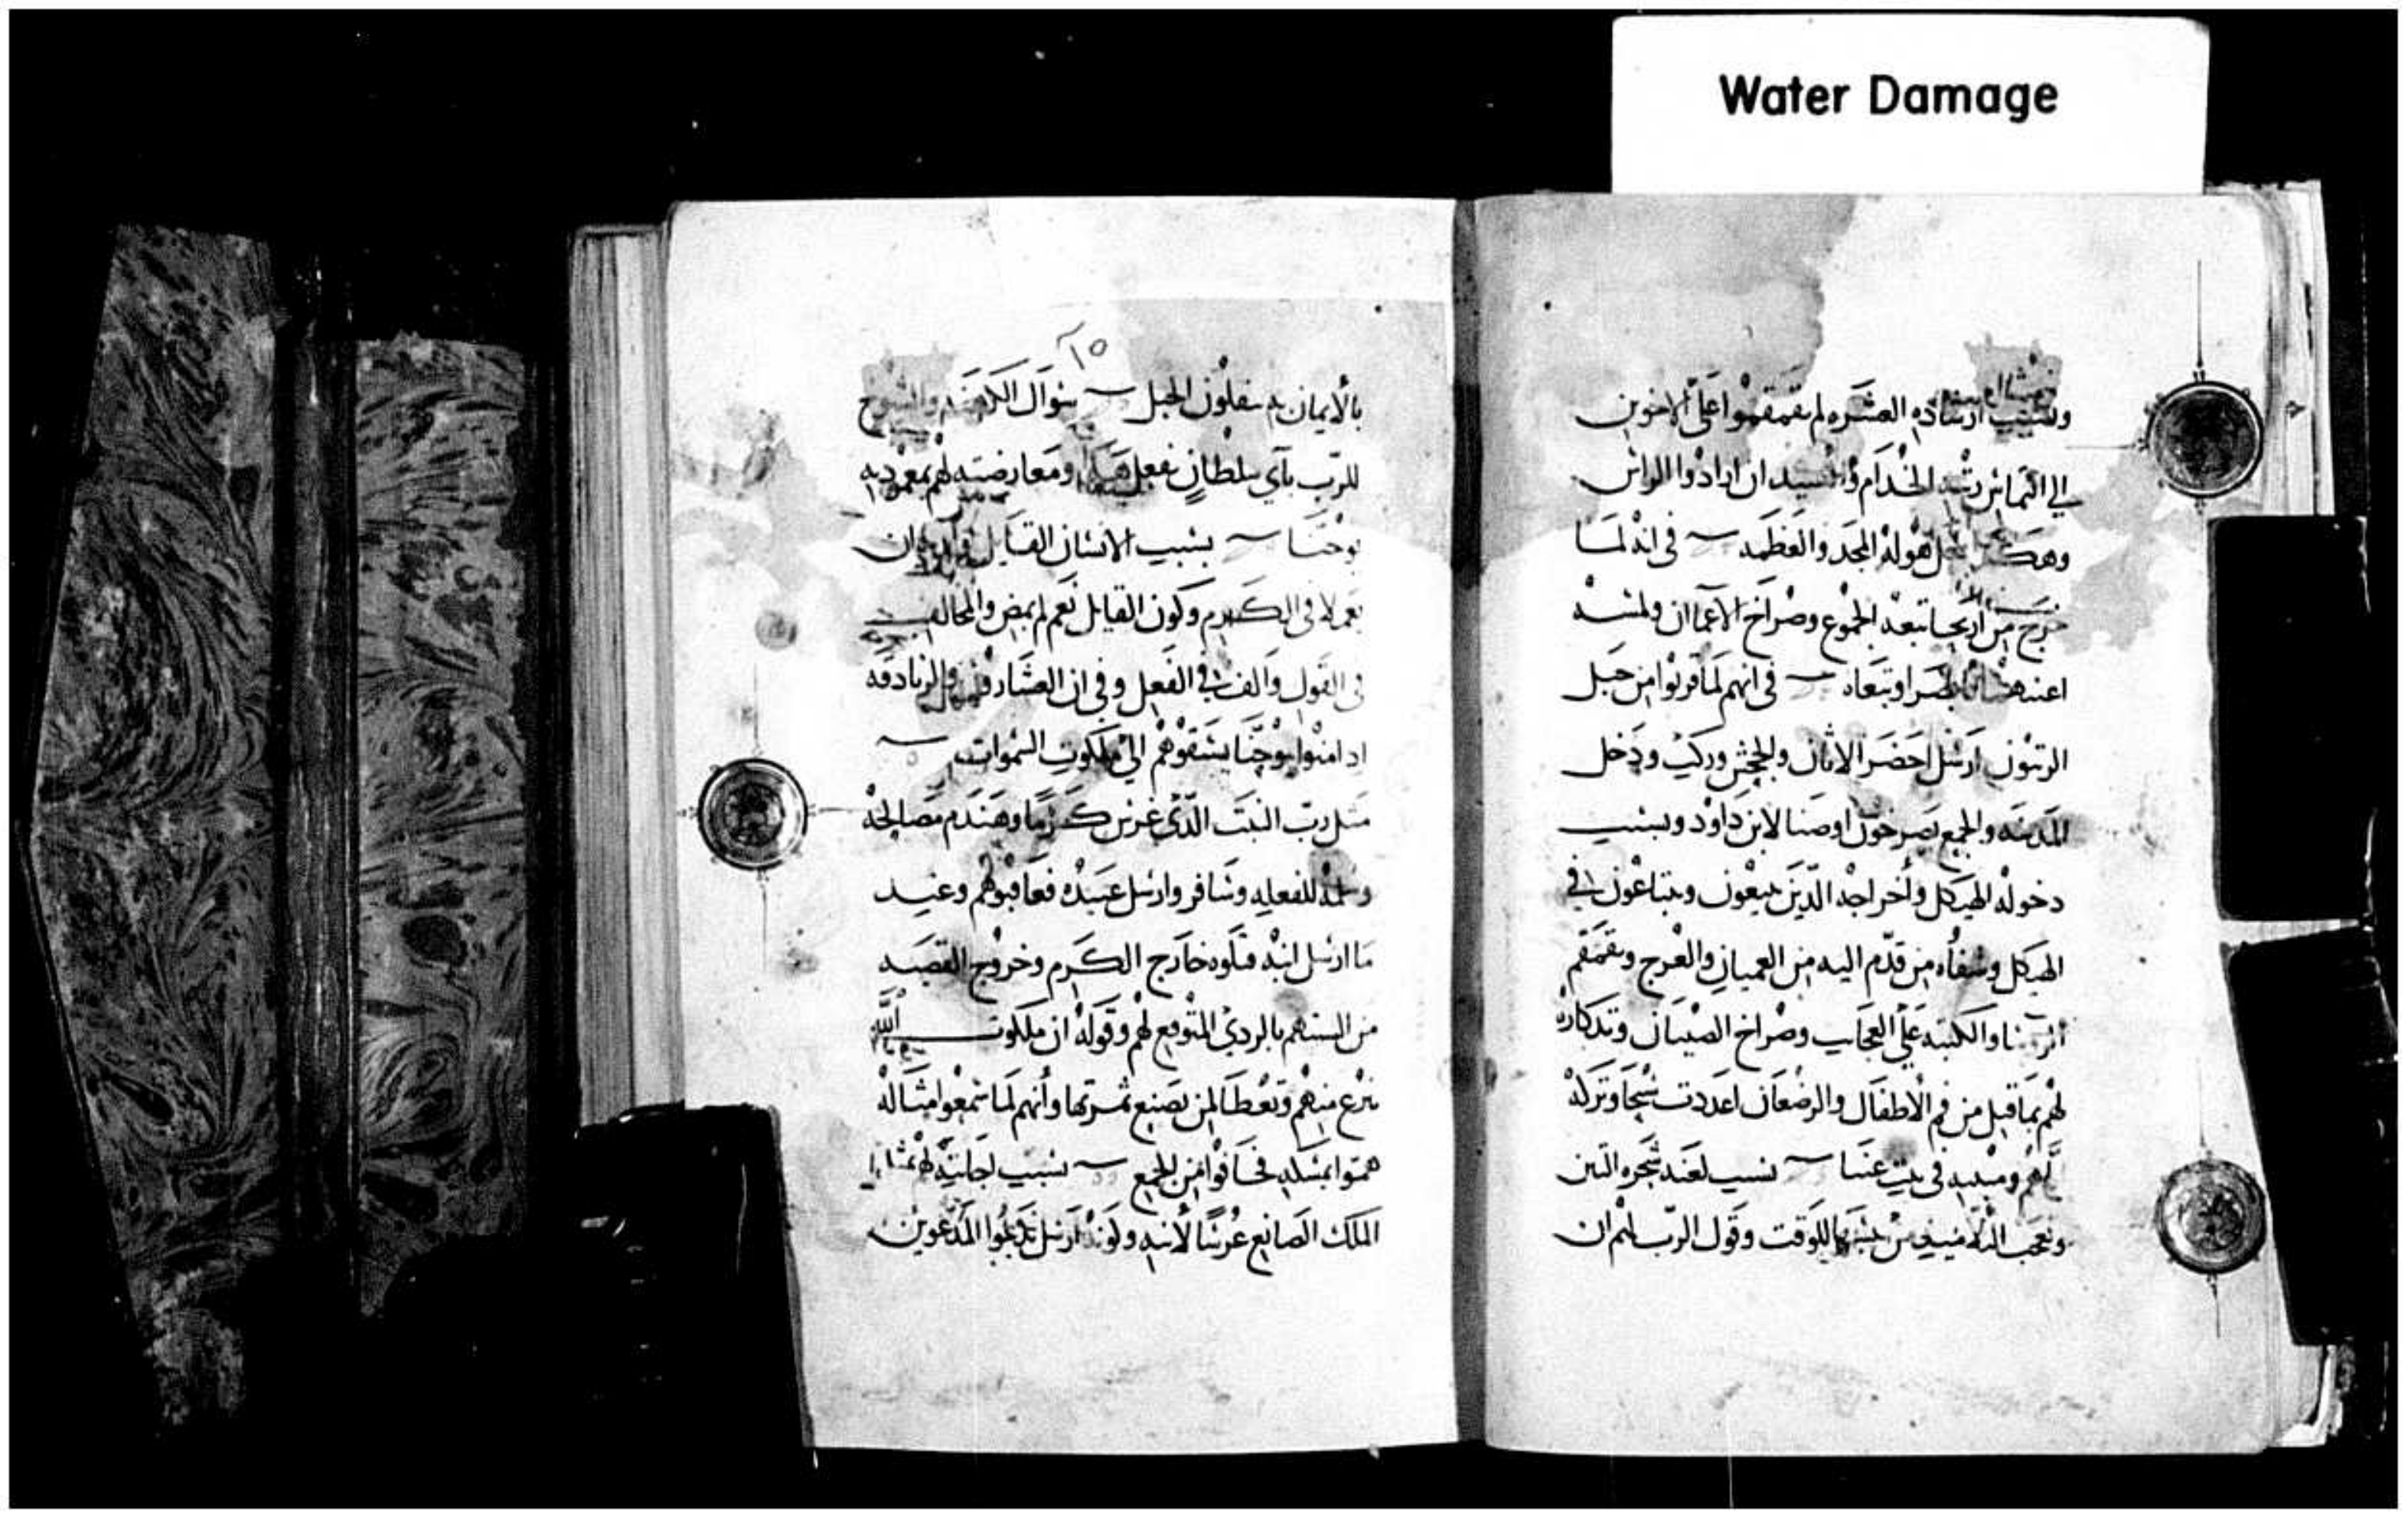 Water Damage
وبسبب ارشاده العشره لم تقمقموا على الاخوين
الي التماس رتبه الخدام وان ارادوا الراس
وهكذا له المجد والعظمه في انه لمــا
خرج من اريحا تبعه الجموع وصراخ الاعماان ولمسه
اعينهما فابصرا وتبعاه في انهم لما قربوا من جبل
الزيتون ارسل احضر الاتان والجحش وركب ودخل
المدينه والجميع يصرخون اوصنا لابن داود وبسبب
دخوله الهيكل وأخراجه الذين يبيعون ويبتاعون في
الهيكل وشفاه من قدم اليه من العميان والعرج وتقمقم
والكتبه على العجايب وصراخ الصبيان وتذكاره
لهم بما قيل من فم الاطفال والرضعان اعددت سبحا وتركه
لهم ومبيته في بيت عنيا بسبب لعنه شجره التين
وتعجب للوقت وقول الرب لهم ان
١٥
بالأيمان تنقلون الجبل سوال الكهنه والشيوخ
للرب بأي سلطان تفعل هذا ومعارضته لهم بمعموديه
يوحنـا بسبب الانسان القايل
نعم لا في الكرم وكون القايل نعم لم يمض والمخالف
في القول والف في الفعل وفي ان العشارون والزنادقه
اد امنوا بيوحنا يسبقوهم الي ملكوت السموات
مثل رب البيت الذي غرس كرمًا وهندم مصالحه
وسلمه للفعله وسافر وارسل عبيده فعاقبوهم وعنيد
ما ارسل ابنه قتلوه خارج الكرم وخروج القضيه
من السنتهم بالردي المتوقع لهم وقوله ان ملكوت الله
تنزع منهم وتعطا لمن يصنع ثمرتها وأنهم لما سمعوا امثاله
همّوا بمسكه فخافوا من الجمع بسبب اجابته لهم
الملك الصانع عرسًا لأبنه وكونه ارسل المدعوين